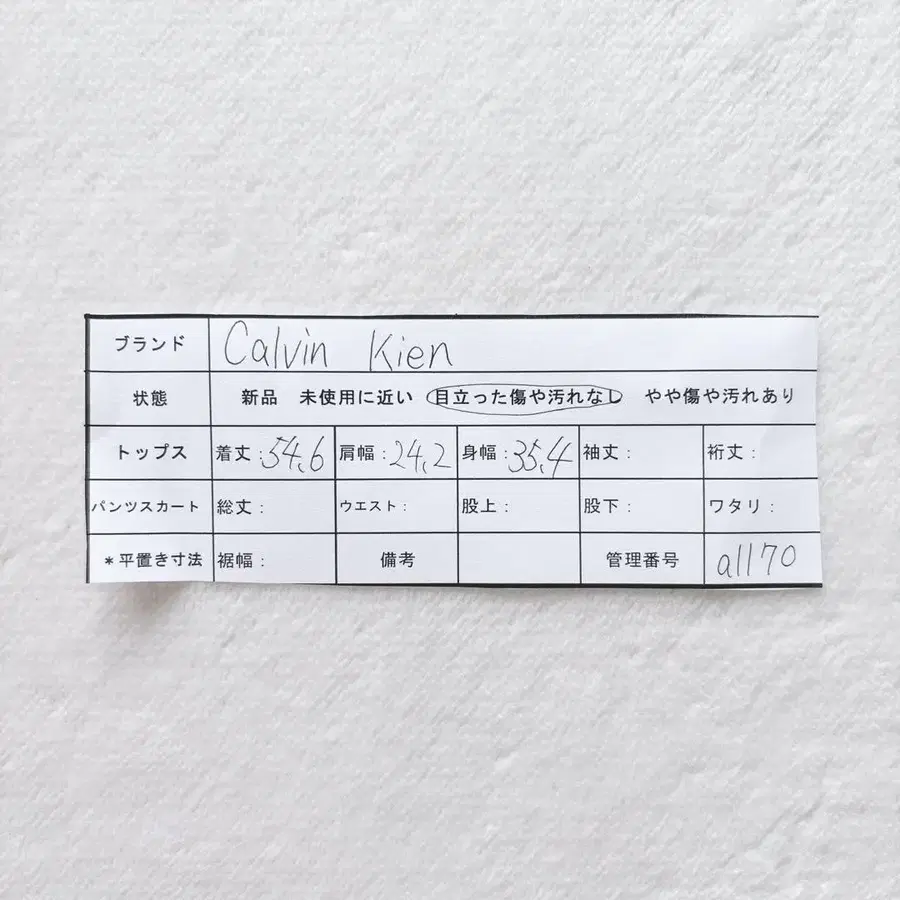 ブランド Calvin Kien
状態 新品 未使用に近い 目立った傷や汚れなし やや傷や汚れあり
トップス 着丈:54,6 肩幅:24,2 身幅:35,4 袖丈: 裄丈:
パンツスカート 総丈: ウエスト: 股上: 股下: ワタリ:
*平置き寸法 裾幅: 備考 管理番号 a1170